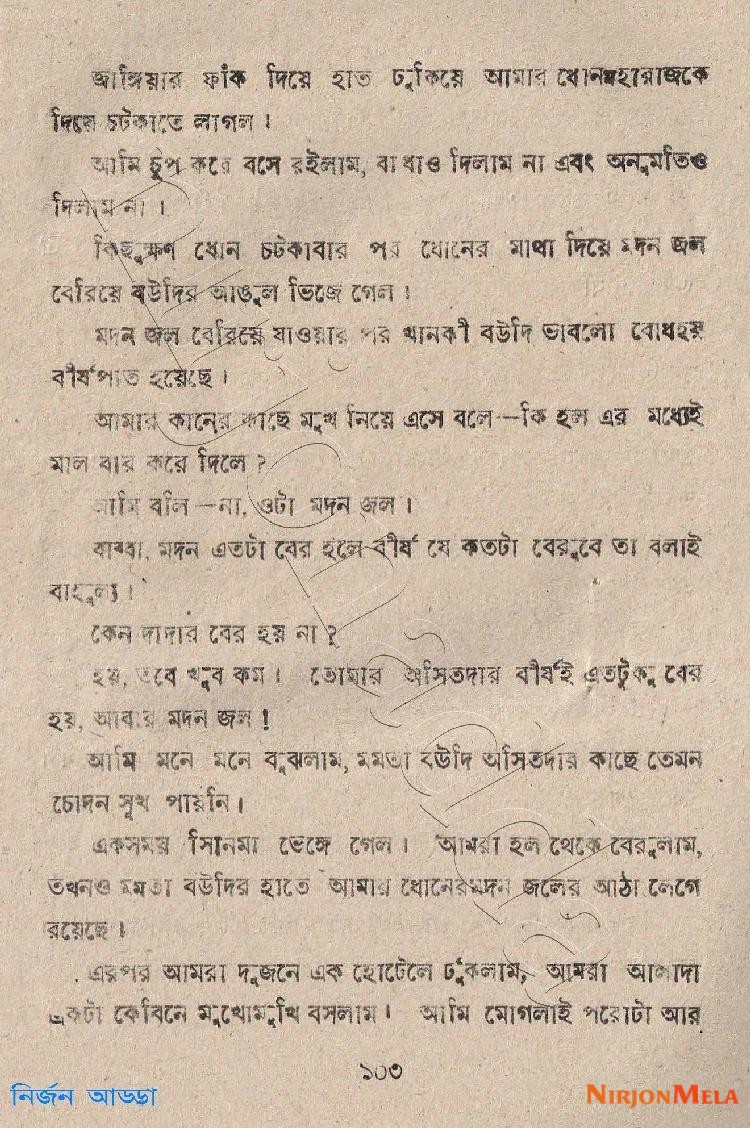 জাঙ্গিয়ার ফাঁক দিয়ে হাত ঢুকিয়ে আমার ধোনমহারাজকে
দিয়ে চটকাতে লাগল।
আমি চুপ করে বসে রইলাম, বাধাও দিলাম না এবং অনুমতিও
দিলাম না।
কিছুক্ষণ ধোন চটকাবার পর ধোনের মাথা দিয়ে মদন জল
বেরিয়ে বউদির আঙুল ভিজে গেল।
মদন জল বেরিয়ে যাওয়ার পর খানকী বউদি ভাবলো বোধহয়
বীর্যপাত হয়েছে।
আমার কানের কাছে মুখ নিয়ে এসে বলে—কি হল এর মধ্যেই
মাল বার করে দিলে?
আমি বলি—না, ওটা মদন জল।
বাব্বা, মদন এতটা বের হলে বীর্য যে কতটা বেরুবে তা বলাই
বাহুল্য।
কেন দাদার বের হয় না?
হয়, তবে খুব কম। তোমার অসিতদার বীর্যই এতটুকু বের
হয়, আবার মদন জল!
আমি মনে মনে বুঝলাম, মমতা বউদি অসিতদার কাছে তেমন
চোদন সুখ পায়নি।
একসময় সিনিমা ভেঙ্গে গেল। আমরা হল থেকে বেরুলাম,
তখনও মমতা বউদির হাতে আমার ধোনেরমদন জলের আঠা লেগে
রয়েছে।
এরপর আমরা দুজনে এক হোটেলে ঢুকলাম, আমরা আলাদা
একটা কেবিনে মুখোমুখি বসলাম। আমি মোগলাই পরোটা আর
১০৩
নির্জন আড্ডা
NIRJONMELA